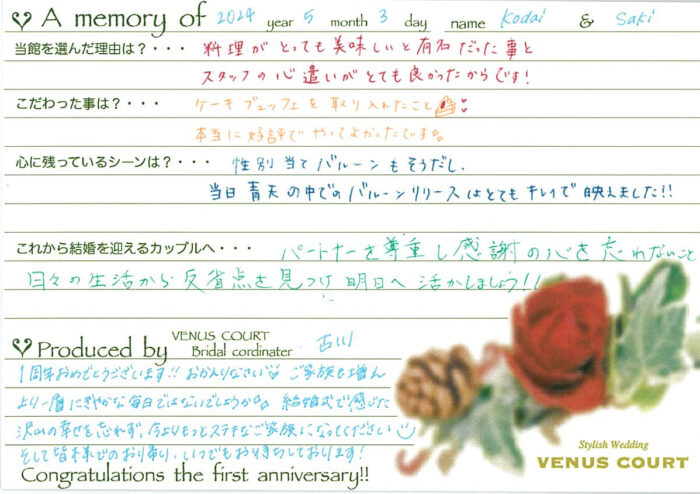 A memory of 2024 year 5 month 3 day name Kodai & Saki
当館を選んだ理由は？・・・ 料理がとっても美味しいと有名だった事と
スタッフの心遣いがとても良かったからです!
こだわった事は？・・・ ケーキブュッフェを取り入れたこと
本当に好評でやってよかったです。
心に残っているシーンは？・・・ 性別当てバルーンもそうだし、
当日青天の中でのバルーンリリースはとてもキレイで映えました!!
これから結婚を迎えるカップルへ・・・ パートナーを尊重し感謝の心を忘れないこと
日々の生活から反省点を見つけ明日へ活かしましょう!!
Produced by VENUS COURT Bridal cordinater 古川
1周年おめでとうございます!! おかえりなさい ご家族も増え
より一層にぎやかな毎日ではないでしょうか。 結婚式で感じた
沢山の幸せを忘れず、今よりもっとステキなご家族になってください
そして皆様でのお帰り、いつでもお待ちしております!
Congratulations the first anniversary!!
Stylish Wedding
VENUS COURT